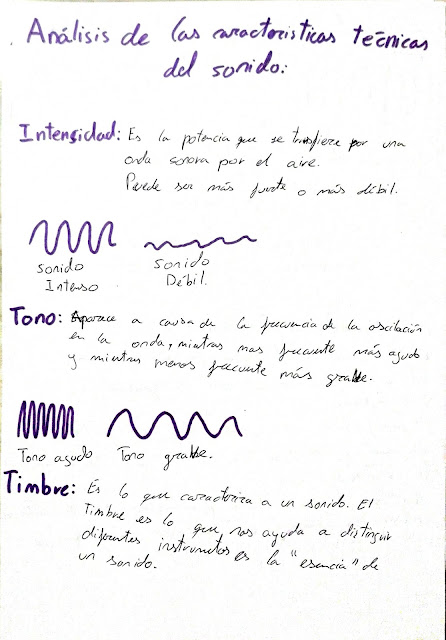 Análisis de las caracteristicas tecnicas
del sonido:
Intensidad: Es la potencia que se transfiere por una
onda sonora por el aire.
Puede ser más fuerte o más débil.
sonido
Intenso
Sonido
Débil.
Tono: Aparece a causa de la frecuencia de la oscilación
en la onda, mientras mas frecuente más agudo
y mientras menos frecuente más grabe.
Tono agudo
Tono grabe.
Timbre: Es lo que caracteriza a un sonido. El
Timbre es lo que nos ayuda a distinguir
diferentes instrumetos es la "esencia" de
un sonido.